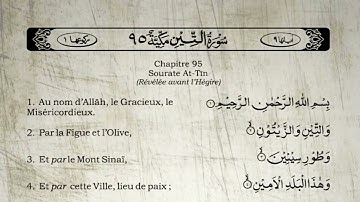 سُوْرَةُ التِّيْنِ مَكِّيَّةٌ ٩٥
Chapitre 95
Sourate At-Tīn
(Révélée avant l'Hégire)
1. Au nom d'Allāh, le Gracieux, le
Miséricordieux.
بِسْمِ اللّٰهِ الرَّحْمٰنِ الرَّحِيْمِ
2. Par la Figue et l'Olive,
وَالتِّيْنِ وَالزَّيْتُوْنِ
3. Et par le Mont Sinaï,
وَطُوْرِ سِيْنِيْنَ
4. Et par cette Ville, lieu de paix ;
وَهٰذَا الْبَلَدِ الْاَمِيْنِ